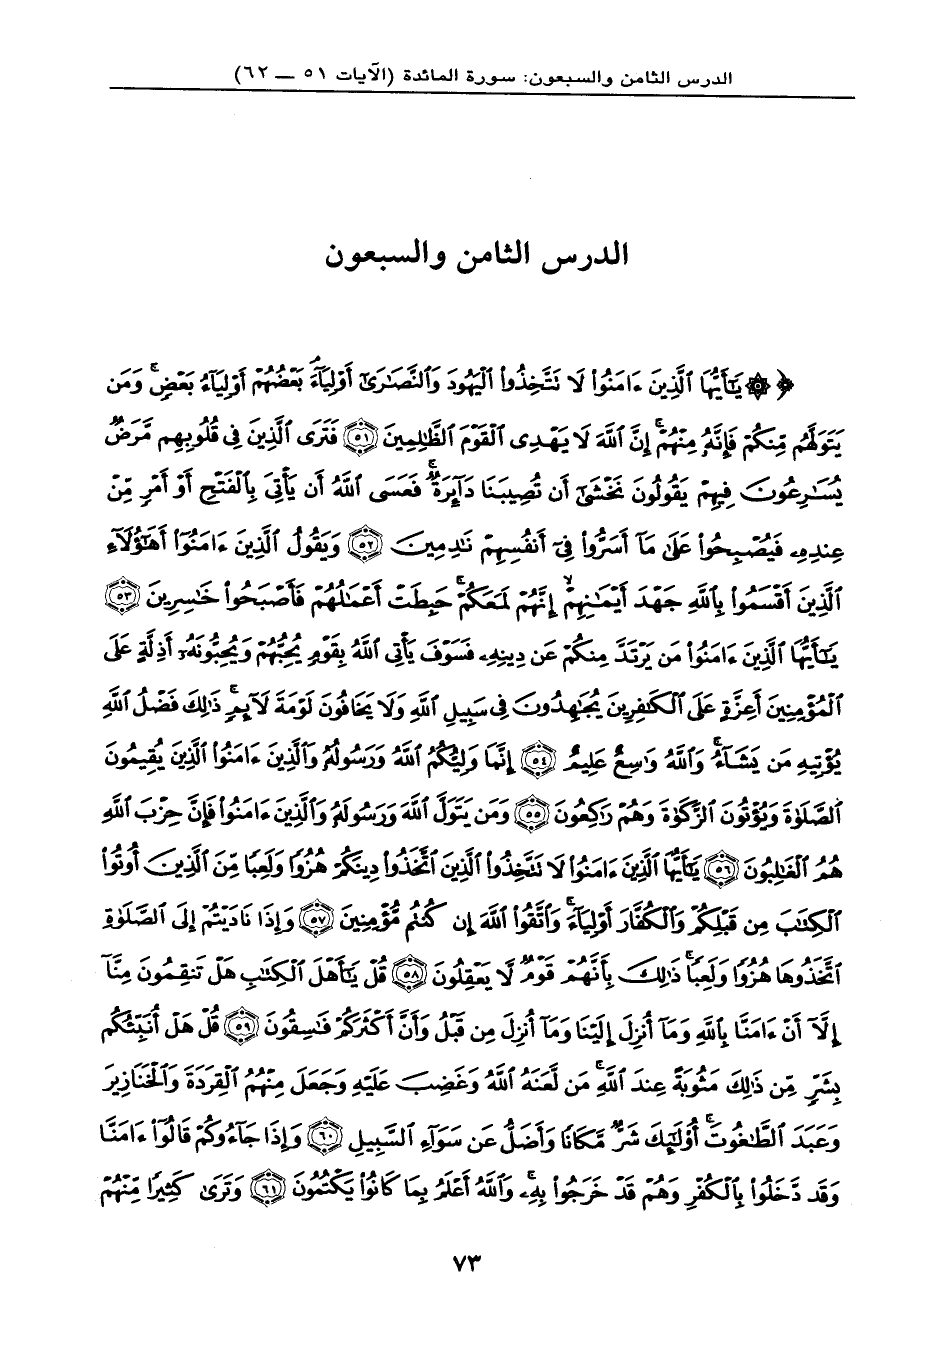 الدرس الثامن والسبعون: سورة المائدة (الآيات ٥١ — ٦٢)
الدرس الثامن والسبعون
﴿ ۞ يَٰٓأَيُّهَا ٱلَّذِينَ ءَامَنُوا۟ لَا تَتَّخِذُوا۟ ٱلْيَهُودَ وَٱلنَّصَٰرَىٰٓ أَوْلِيَآءَ ۘ بَعْضُهُمْ أَوْلِيَآءُ بَعْضٍ ۚ وَمَن
يَتَوَلَّهُم مِّنكُمْ فَإِنَّهُۥ مِنْهُمْ ۗ إِنَّ ٱللَّهَ لَا يَهْدِى ٱلْقَوْمَ ٱلظَّٰلِمِينَ ﴿٥١﴾ فَتَرَى ٱلَّذِينَ فِى قُلُوبِهِم مَّرَضٌ
يُسَٰرِعُونَ فِيهِمْ يَقُولُونَ نَخْشَىٰٓ أَن تُصِيبَنَا دَآئِرَةٌ ۚ فَعَسَى ٱللَّهُ أَن يَأْتِىَ بِٱلْفَتْحِ أَوْ أَمْرٍ مِّنْ
عِندِهِۦ فَيُصْبِحُوا۟ عَلَىٰ مَآ أَسَرُّوا۟ فِىٓ أَنفُسِهِمْ نَٰدِمِينَ ﴿٥٢﴾ وَيَقُولُ ٱلَّذِينَ ءَامَنُوٓا۟ أَهَٰٓؤُلَآءِ
ٱلَّذِينَ أَقْسَمُوا۟ بِٱللَّهِ جَهْدَ أَيْمَٰنِهِمْ ۙ إِنَّهُمْ لَمَعَكُمْ ۚ حَبِطَتْ أَعْمَٰلُهُمْ فَأَصْبَحُوا۟ خَٰسِرِينَ ﴿٥٣﴾
يَٰٓأَيُّهَا ٱلَّذِينَ ءَامَنُوا۟ مَن يَرْتَدَّ مِنكُمْ عَن دِينِهِۦ فَسَوْفَ يَأْتِى ٱللَّهُ بِقَوْمٍ يُحِبُّهُمْ وَيُحِبُّونَهُۥٓ أَذِلَّةٍ عَلَى
ٱلْمُؤْمِنِينَ أَعِزَّةٍ عَلَى ٱلْكَٰفِرِينَ يُجَٰهِدُونَ فِى سَبِيلِ ٱللَّهِ وَلَا يَخَافُونَ لَوْمَةَ لَآئِمٍ ۚ ذَٰلِكَ فَضْلُ ٱللَّهِ
يُؤْتِيهِ مَن يَشَآءُ ۚ وَٱللَّهُ وَٰسِعٌ عَلِيمٌ ﴿٥٤﴾ إِنَّمَا وَلِيُّكُمُ ٱللَّهُ وَرَسُولُهُۥ وَٱلَّذِينَ ءَامَنُوا۟ ٱلَّذِينَ يُقِيمُونَ
ٱلصَّلَوٰةَ وَيُؤْتُونَ ٱلزَّكَوٰةَ وَهُمْ رَٰكِعُونَ ﴿٥٥﴾ وَمَن يَتَوَلَّ ٱللَّهَ وَرَسُولَهُۥ وَٱلَّذِينَ ءَامَنُوا۟ فَإِنَّ حِزْبَ ٱللَّهِ
هُمُ ٱلْغَٰلِبُونَ ﴿٥٦﴾ يَٰٓأَيُّهَا ٱلَّذِينَ ءَامَنُوا۟ لَا تَتَّخِذُوا۟ ٱلَّذِينَ ٱتَّخَذُوا۟ دِينَكُمْ هُزُوًا وَلَعِبًا مِّنَ ٱلَّذِينَ أُوتُوا۟
ٱلْكِتَٰبَ مِن قَبْلِكُمْ وَٱلْكُفَّارَ أَوْلِيَآءَ ۚ وَٱتَّقُوا۟ ٱللَّهَ إِن كُنتُم مُّؤْمِنِينَ ﴿٥٧﴾ وَإِذَا نَادَيْتُمْ إِلَى ٱلصَّلَوٰةِ
ٱتَّخَذُوهَا هُزُوًا وَلَعِبًا ۚ ذَٰلِكَ بِأَنَّهُمْ قَوْمٌ لَّا يَعْقِلُونَ ﴿٥٨﴾ قُلْ يَٰٓأَهْلَ ٱلْكِتَٰبِ هَلْ تَنقِمُونَ مِنَّآ
إِلَّآ أَنْ ءَامَنَّا بِٱللَّهِ وَمَآ أُنزِلَ إِلَيْنَا وَمَآ أُنزِلَ مِن قَبْلُ وَأَنَّ أَكْثَرَكُمْ فَٰسِقُونَ ﴿٥٩﴾ قُلْ هَلْ أُنَبِّئُكُم
بِشَرٍّ مِّن ذَٰلِكَ مَثُوبَةً عِندَ ٱللَّهِ ۚ مَن لَّعَنَهُ ٱللَّهُ وَغَضِبَ عَلَيْهِ وَجَعَلَ مِنْهُمُ ٱلْقِرَدَةَ وَٱلْخَنَازِيرَ
وَعَبَدَ ٱلطَّٰغُوتَ ۚ أُو۟لَٰٓئِكَ شَرٌّ مَّكَانًا وَأَضَلُّ عَن سَوَآءِ ٱلسَّبِيلِ ﴿٦٠﴾ وَإِذَا جَآءُوكُمْ قَالُوٓا۟ ءَامَنَّا
وَقَد دَّخَلُوا۟ بِٱلْكُفْرِ وَهُمْ قَدْ خَرَجُوا۟ بِهِۦ ۚ وَٱللَّهُ أَعْلَمُ بِمَا كَانُوا۟ يَكْتُمُونَ ﴿٦١﴾ وَتَرَىٰ كَثِيرًا مِّنْهُمْ
٧٣